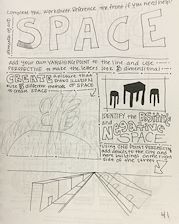 Complete the worksheet. Reference the front if you need help!
SPACE
Add your own VANISHING POINT to the line and use
PERSPECTIVE to make the letters look 3 dimensional
CREATE
use 3 different methods of SPACE
IDENTIFY the POSITIVE
and
NEGATIVE
Using ONE POINT PERSPECTIVE
add details to the city and
more buildings on the right
side of the street
41